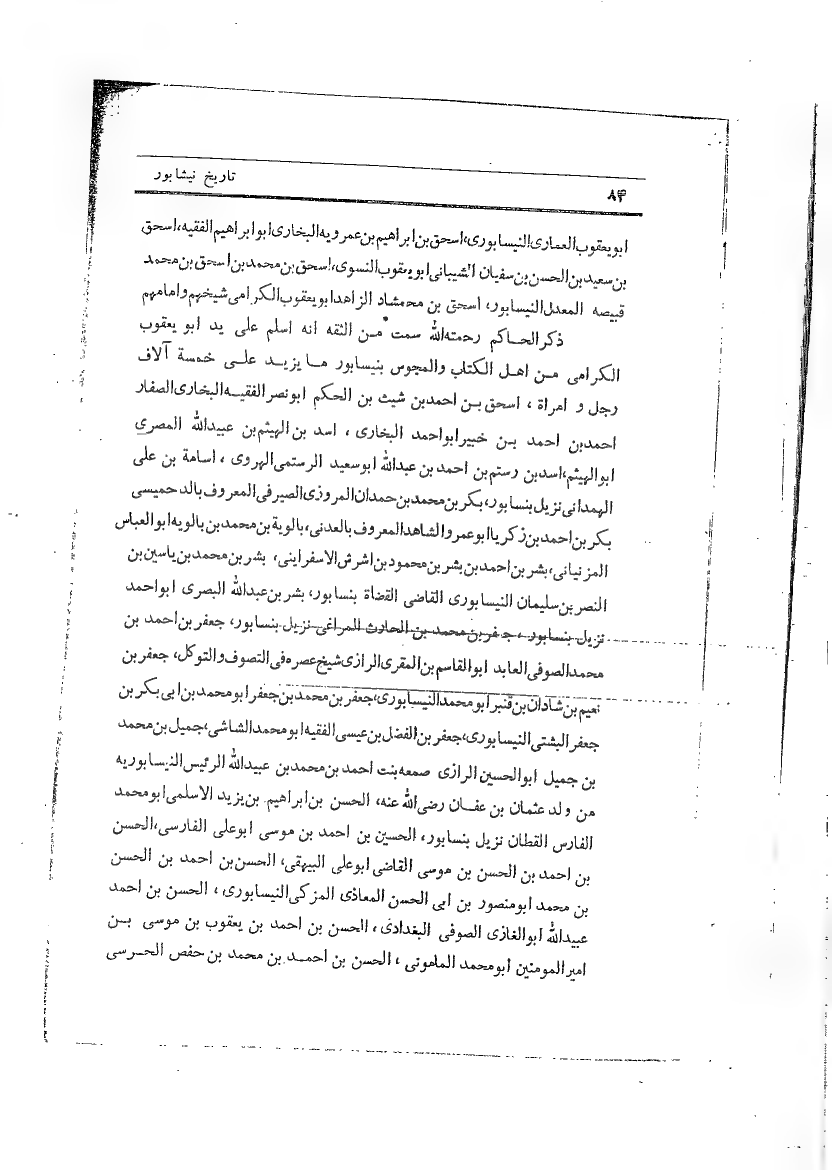 تاریخ نیشابور
۸۴
ابویعقوب العماری النیسابوری، اسحق بن ابراهیم بن عمرویه البخاری ابوابراهیم الفقیه، اسحق
بن سعید بن الحسن بن سفیان الشیبانی ابویعقوب النسوی، اسحق بن محمد بن اسحق بن محمد
قبیصه المعدل النیسابور، اسحق بن محمشاد الزاهد ابویعقوب الکرامی شیخهم و امامهم
ذکر الحاکم رحمته‌الله سمت من الثقه انه اسلم علی ید ابو یعقوب
الکرامی من اهل الکتاب والمجوس بنیسابور ما یزید علی خمسة آلاف
رجل و امراة ، اسحق بن احمد بن شیث بن الحکم ابونصر الفقیه البخاری الصفار
احمد بن احمد بن خبیر ابواحمد البخاری ، اسد بن الهیثم بن عبیدالله المصری
ابوالهیثم، اسد بن رستم بن احمد بن عبدالله ابوسعید الرستمی الهروی ، اسامة بن علی
الهمدانی نزیل بنسابور، بکر بن محمد بن حمدان المروزی الصیرفی المعروف بالدحمیسی
بکر بن احمد بن زکریا ابوعمر والشاهد المعروف بالعدنی، بالویة بن محمد بن بالویه ابوالعباس
المزنیانی، بشر بن احمد بن بشر بن محمود بن اشرش الاسفراینی، بشر بن محمد بن یاسین بن
النصر بن سلیمان النیسابوری القاضی القضاة بنسابور، بشر بن عبدالله البصری ابواحمد
نزیل بنسابور ، جعفر بن محمد بن الحارث المراغی نزیل بنسابور، جعفر بن احمد بن
محمد الصوفی العابد ابوالقاسم بن المقری الرازی شیخ عصره فی التصوف والتوکل، جعفر بن
نعیم بن شادان بن قنبر ابومحمد النیسابوری، جعفر بن محمد بن جعفر ابومحمد بن ابی بکر بن
جعفر البشتی النیسابوری، جعفر بن الفضل بن عیسی الفقیه ابومحمد الشاشی، جمیل بن محمد
بن جمیل ابوالحسین الرازی صمعه بنت احمد بن محمد بن عبیدالله الرئیس النیسابوریه
من ولد عثمان بن عفان رضی‌الله عنه، الحسن بن ابراهیم بن یزید الاسلمی ابومحمد
الفارس القطان نزیل بنسابور، الحسین بن احمد بن موسی ابوعلی الفارسی، الحسن
بن احمد بن الحسن بن موسی القاضی ابوعلی البیهقی، الحسن بن احمد بن الحسن
بن محمد ابومنصور بن ابی الحسن المعاذی المزکی النیسابوری ، الحسن بن احمد
عبیدالله ابوالغازی الصوفی البغدادی، الحسن بن احمد بن یعقوب بن موسی بن
امیرالمومنین ابومحمد المامونی ، الحسن بن احمد بن محمد بن حفص الحرسی